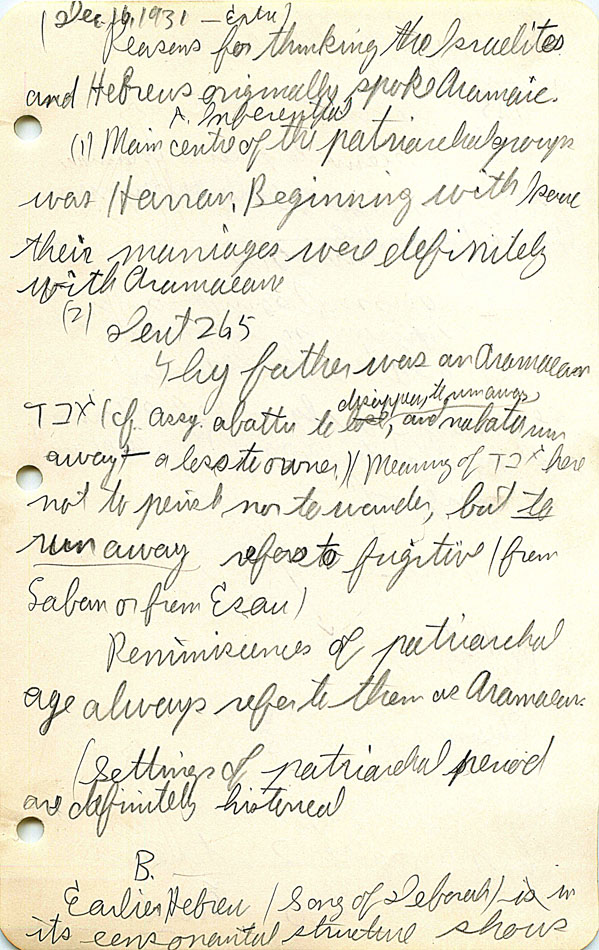 (Dec. 16, 1931 —
Reasons for thinking the Israelites
and Hebrews originally spoke Aramaic.
A. Inferential
(1) Main centre of the patriarchal groups
was Harran. Beginning with Isaac
their marriages were definitely
with Aramaeans
(2) Deut 26 5
Thy father was an Aramaean
אבד (cf. Assy. abattu to disappear, to run away, and nabatu run
away + a loss to owner) ( Meaning of אבד here
not to perish nor to wander, but to
run away refers to fugitive (from
Laban or from Esau)
Reminiscences of patriarchal
age always refer to them as Aramaean.
(Settings of patriarchal period
are definitely historical
B.
Earlier Hebrew (Song of Deborah) is in
its consonantal structure shows